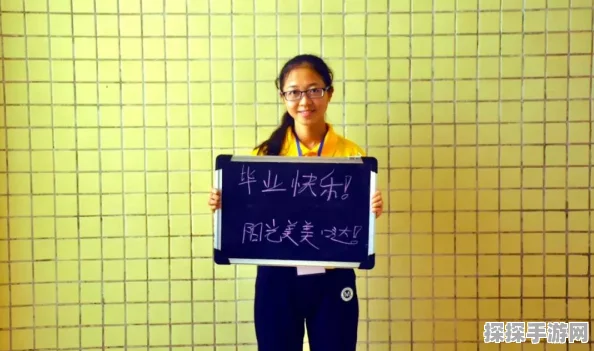 毕业快乐!
周岂美美
探探手游网